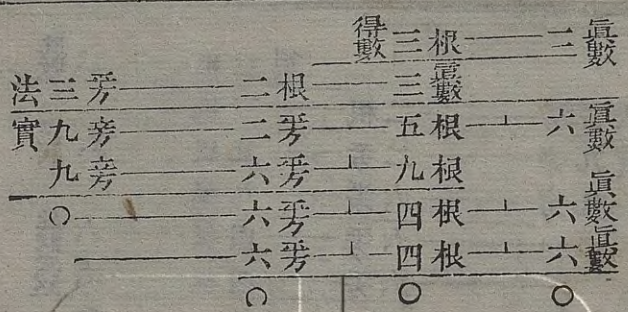 得數三根——二眞數
法三平方——二根——三眞數
實九立方——二平方——五根—⊥—六眞數
九立方——六平方—⊥—九根
○——六平方—⊥—四根—⊥—六眞數
——六平方—⊥—四根—⊥—六眞數
○ ○ ○